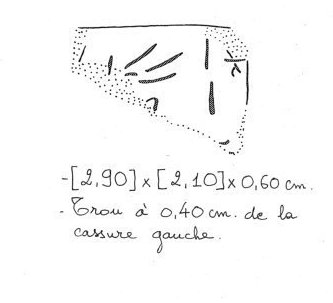 -[2,90] x [2,10] x 0,60 cm.
- Trou à 0,40 cm. de la
cassure gauche.